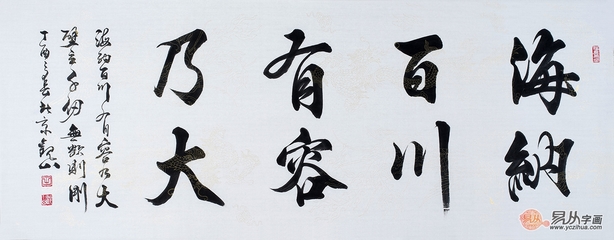 海納
百川
有容
乃大
海納百川有容乃大
壁立千仞無欲則剛
丁酉
易从字画
www.yczihua.com